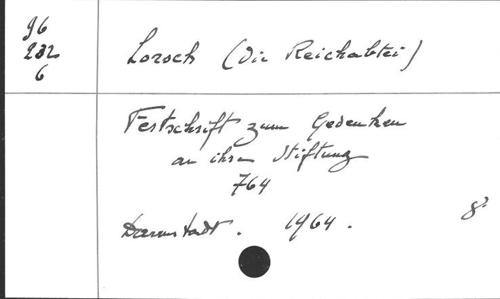 96
232
6
Lorsch (Die Reichsabtei)
Festschrift zum Gedenken
an ihre Stiftung
764
Darmstadt. 1964.
8°